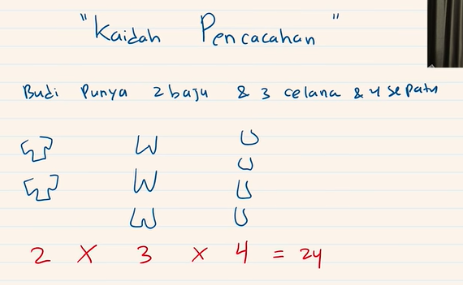 "Kaidah Pencacahan"
Budi Punya 2 baju & 3 celana & 4 sepatu
2 X 3 X 4 = 24